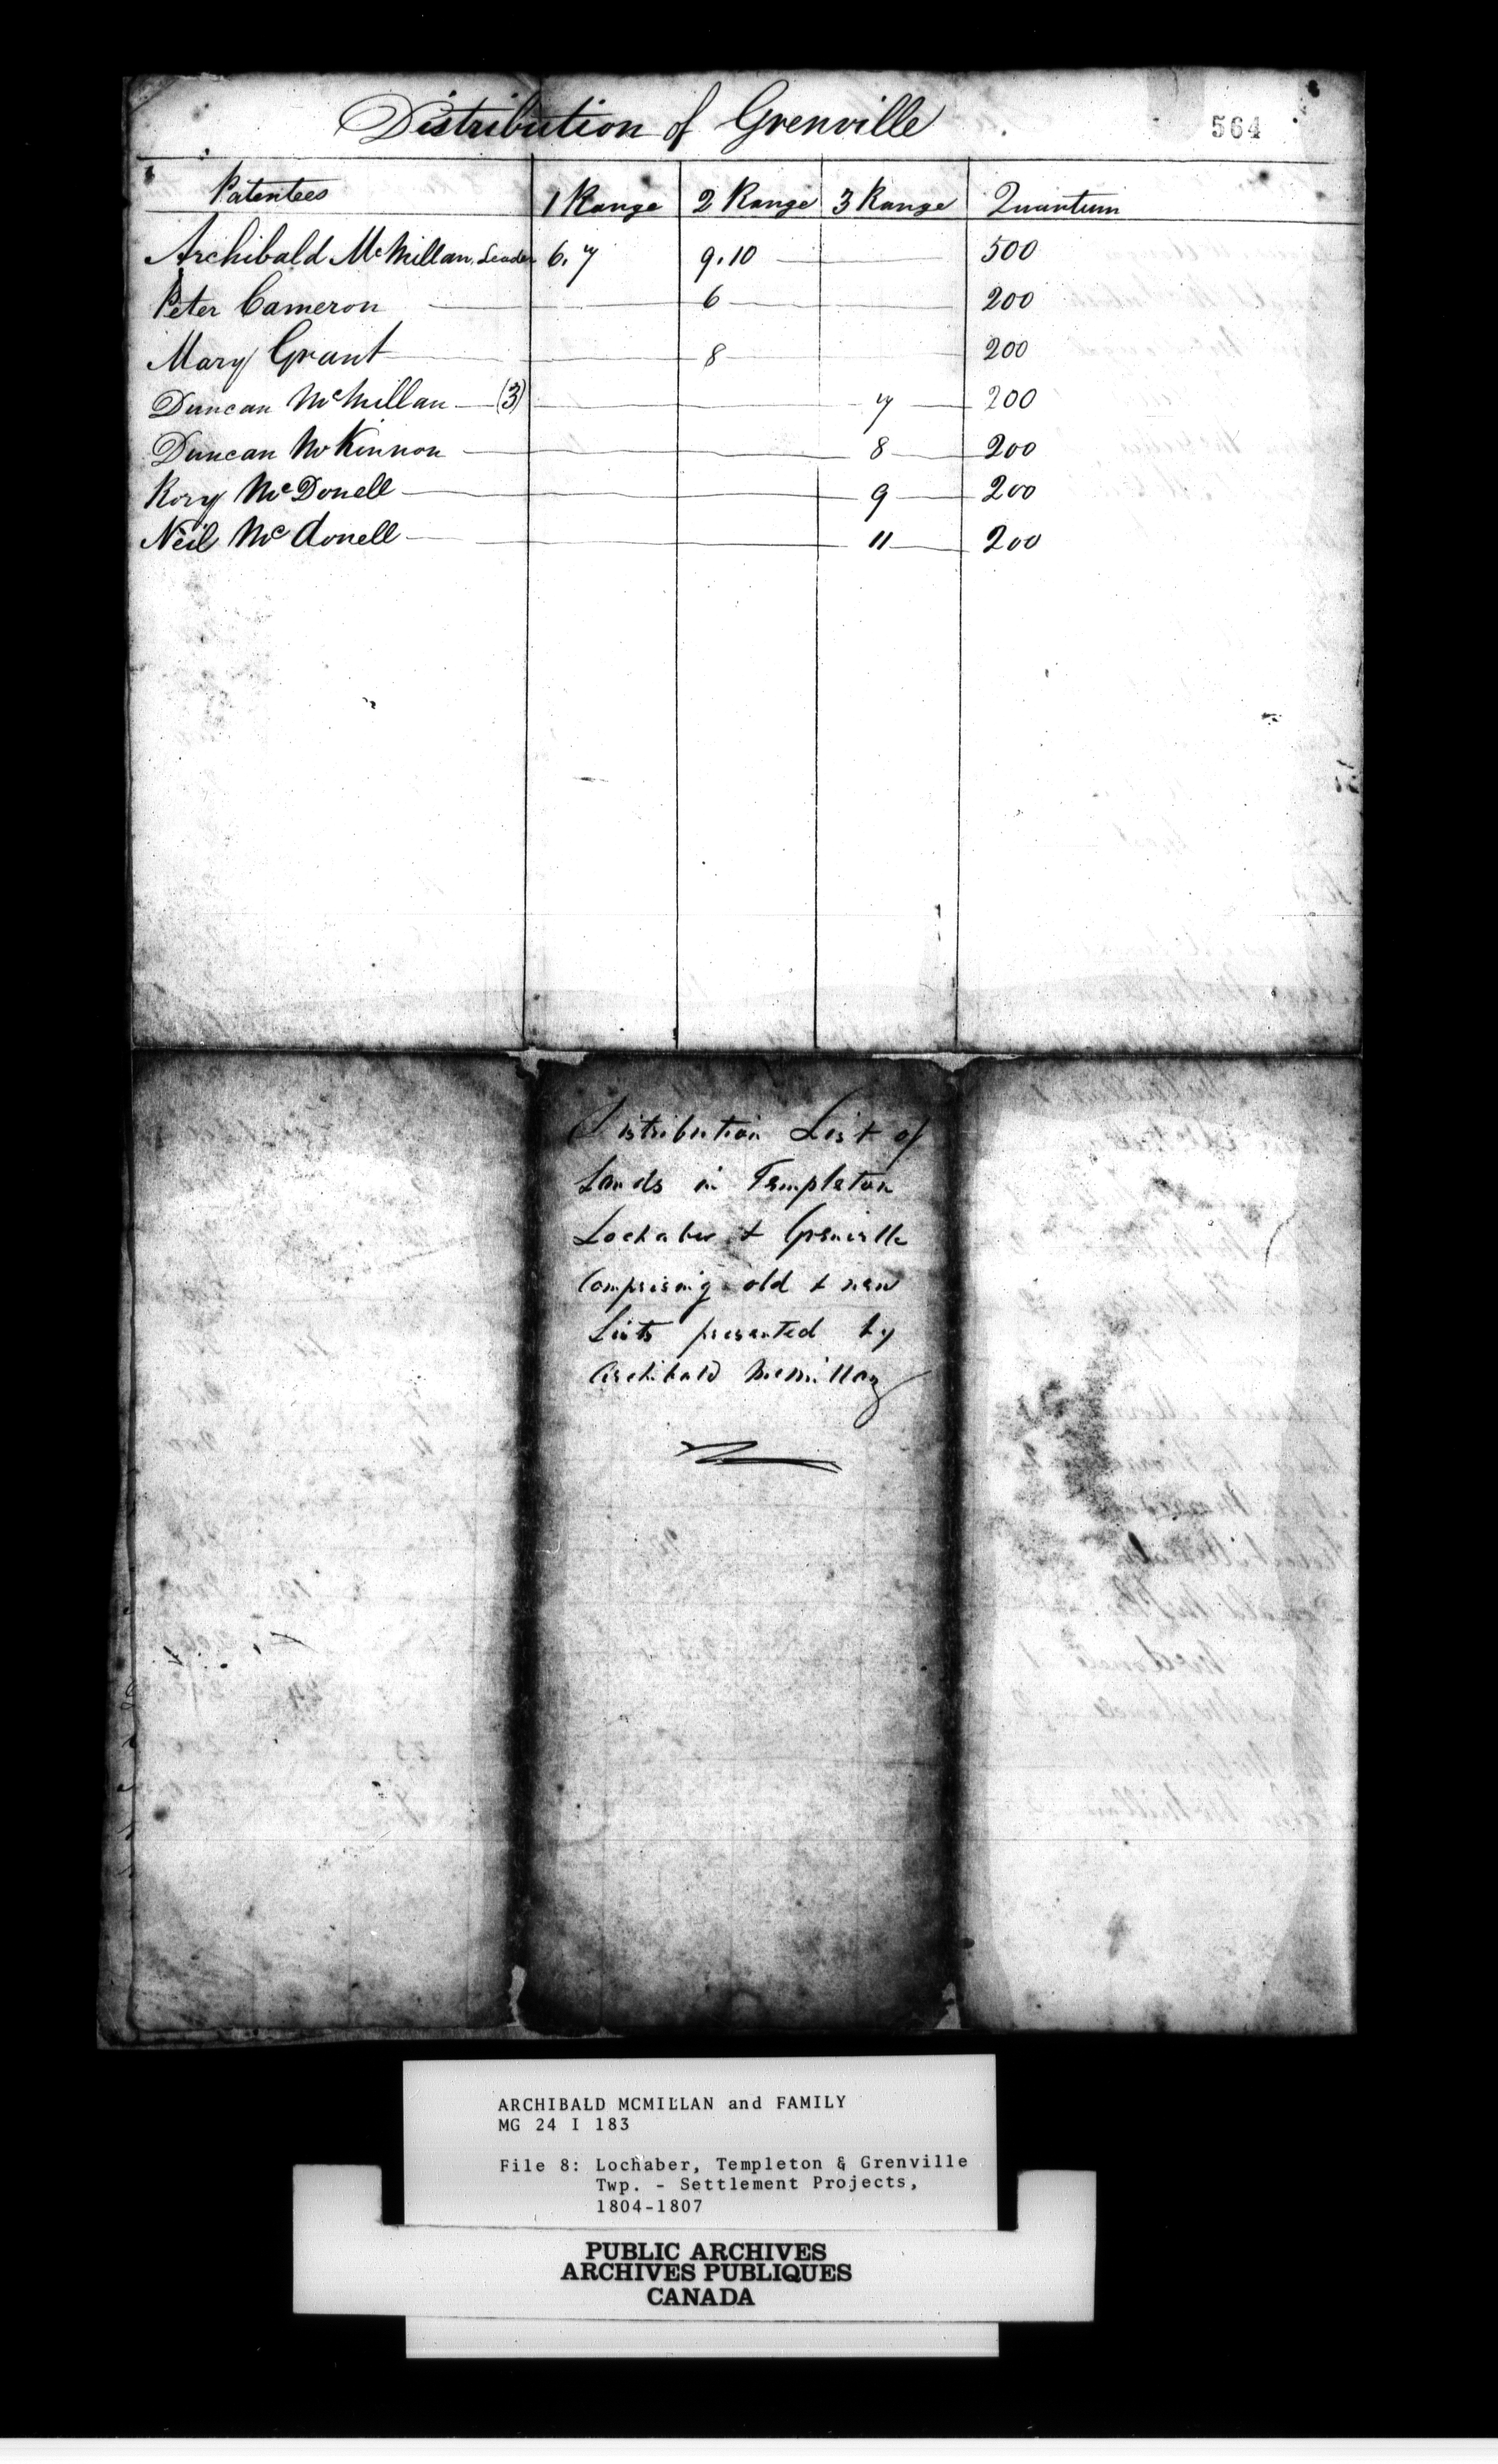 Distribution of Grenville
564
Patentees 1 Range 2 Range 3 Range Quantum
Archibald McMillan, Leader 6. 7 9. 10 500
Peter Cameron 6 200
Mary Grant 8 200
Duncan McMillan (3) 7 200
Duncan McKinnon 8 200
Rory McDonell 9 200
Neil Mcdonell 11 200
Distribution List of
Lands in Templeton
Lochaber & Grenville
Comprising old & new
Lists presented by
Archibald McMillan
ARCHIBALD MCMILLAN and FAMILY
MG 24 I 183
File 8: Lochaber, Templeton & Grenville
Twp. - Settlement Projects,
1804-1807
PUBLIC ARCHIVES
ARCHIVES PUBLIQUES
CANADA